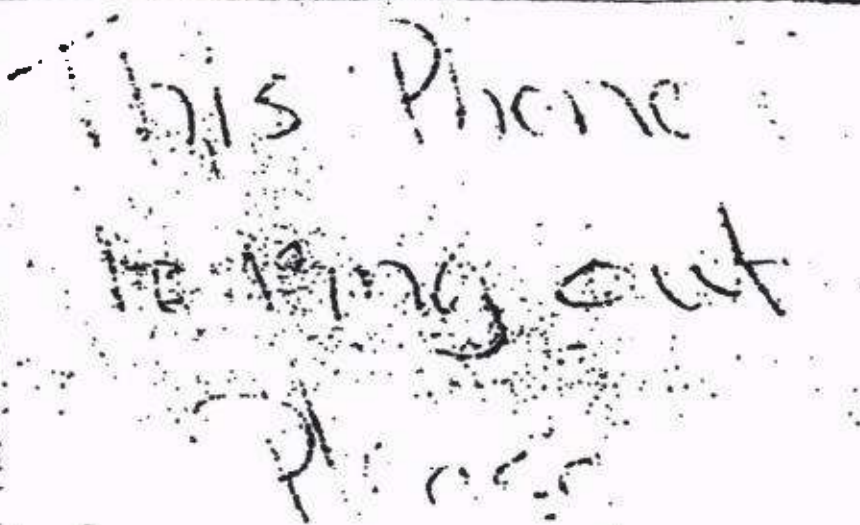 This Phone
to Ring out
Please